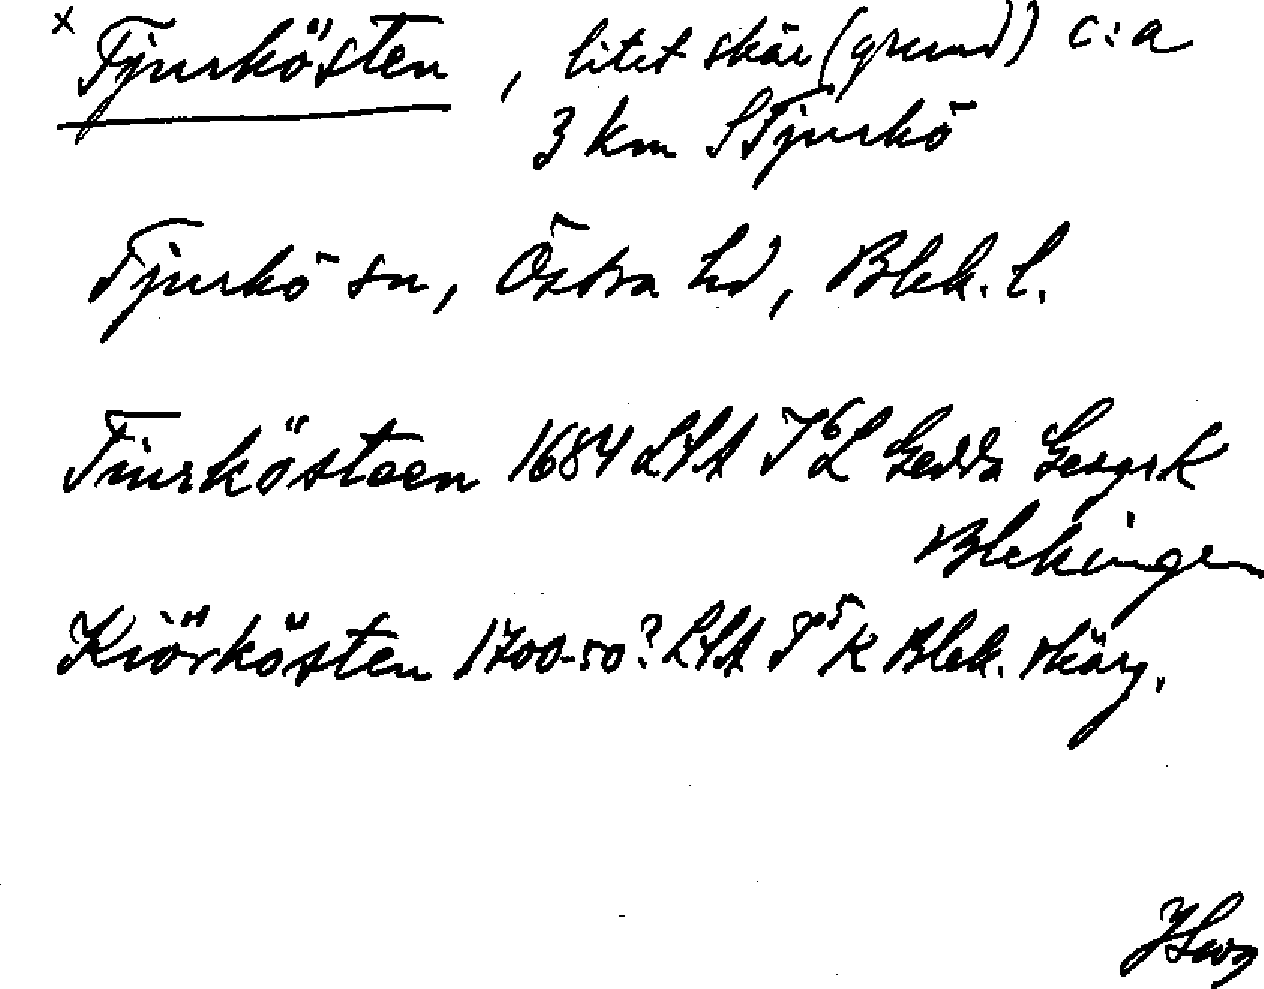 x Tjurkösten, litet skär (grund)) c:a
3 km S Tjurkö
Tjurkö sn, Östra hd, Blek. l.
Tiurkösteen 1684 LSA T⁶L Gedda Geogr K
Blekingen
Kiörkösten 1700-50? LSA T⁵K Blek. skärg.